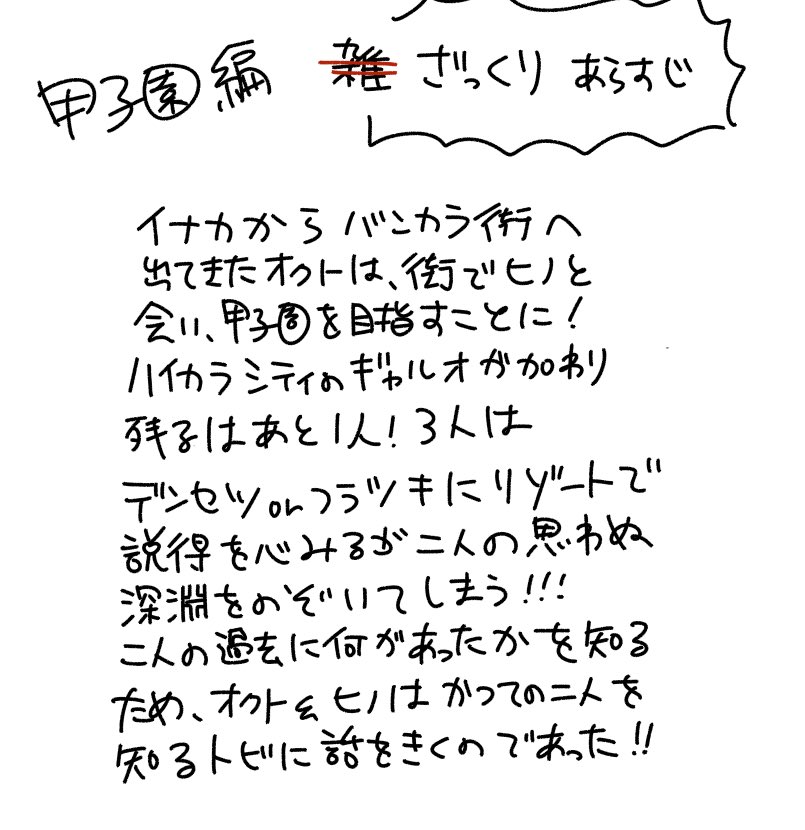 甲子園編
雑 ざっくり あらすじ
イナカから バンカラ街へ
出てきたオクトは、街でヒノと
会い、甲子園を目指すことに！
ハイカラシティのギャルオが加わり
残るはあと1人！3人は
デンセツorフラツキにリゾートで
説得を心みるが二人の思わぬ
深淵をのぞいてしまう!!!
二人の過去に何があったかを知る
ため、オクト&ヒノはかつての二人を
知るトビに話をきくのであった!!